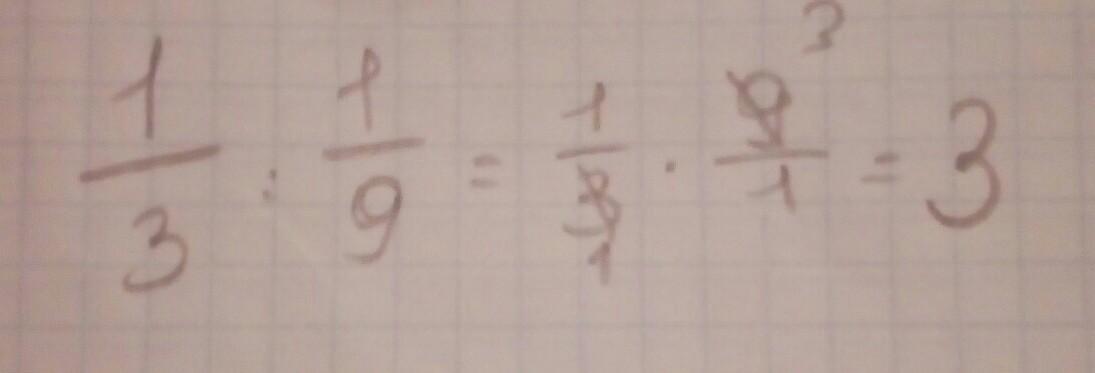 1/3 : 1/9 = 1/3̸ 1 · 9̸ 3/1 = 3